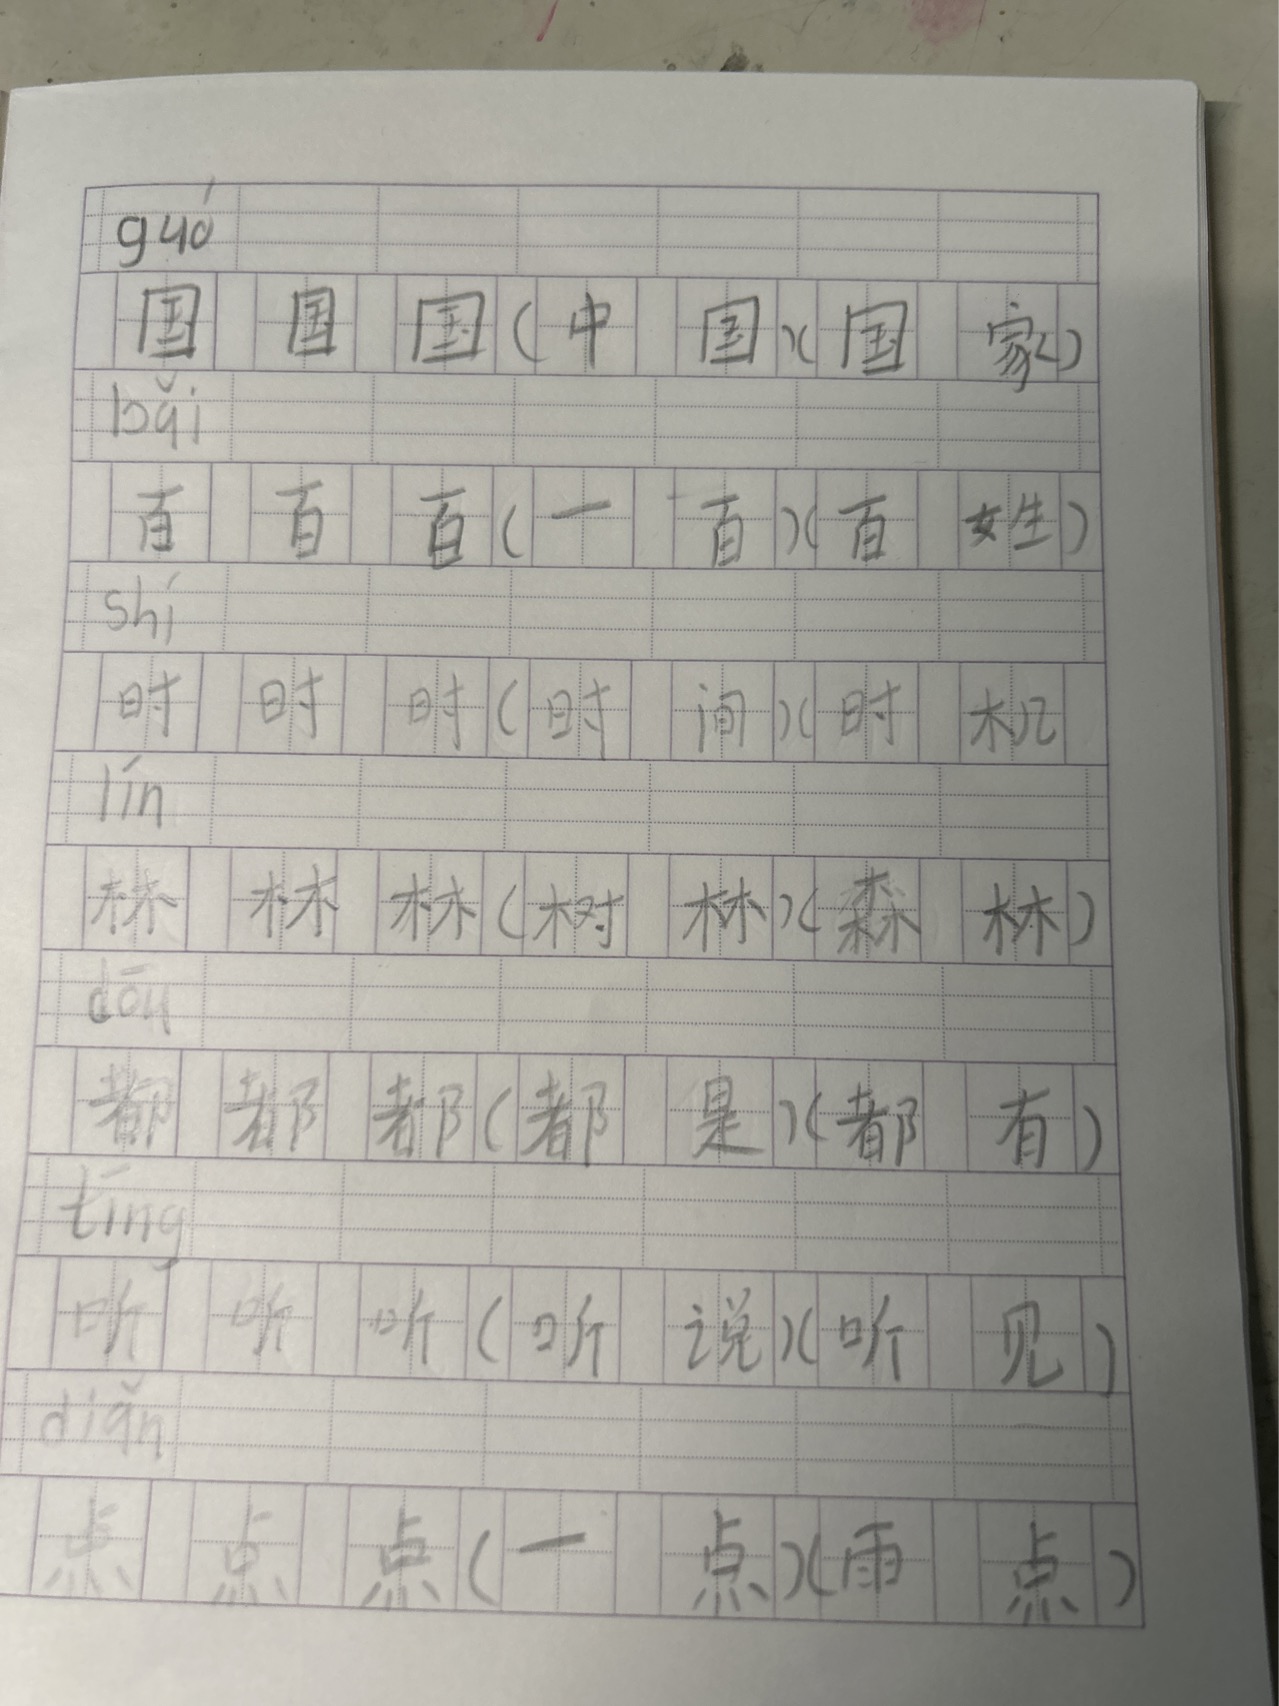 guó
国 国 国 (中 国)(国 家)
bǎi
百 百 百 (一 百)(百 姓)
shí
时 时 时 (时 间)(时 机
lín
林 林 林 (树 林)(森 林)
dōu
都 都 都 (都 是)(都 有)
tīng
听 听 听 (听 说)(听 见)
diǎn
点 点 点 (一 点)(雨 点)